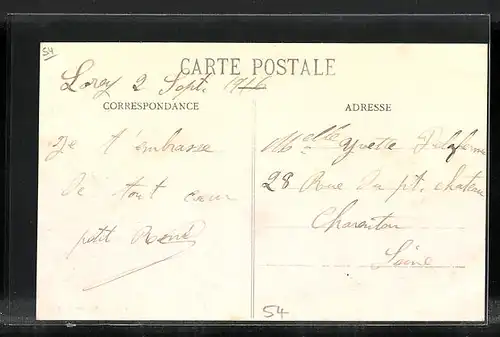 54
CARTE POSTALE
Lorey 2 Sept. 1916
CORRESPONDANCE
ADRESSE
Je t'embrasse
de tout cœur
petit René
Melle Yvette
28 Rue du pt. chateau
Charenton
Seine
54